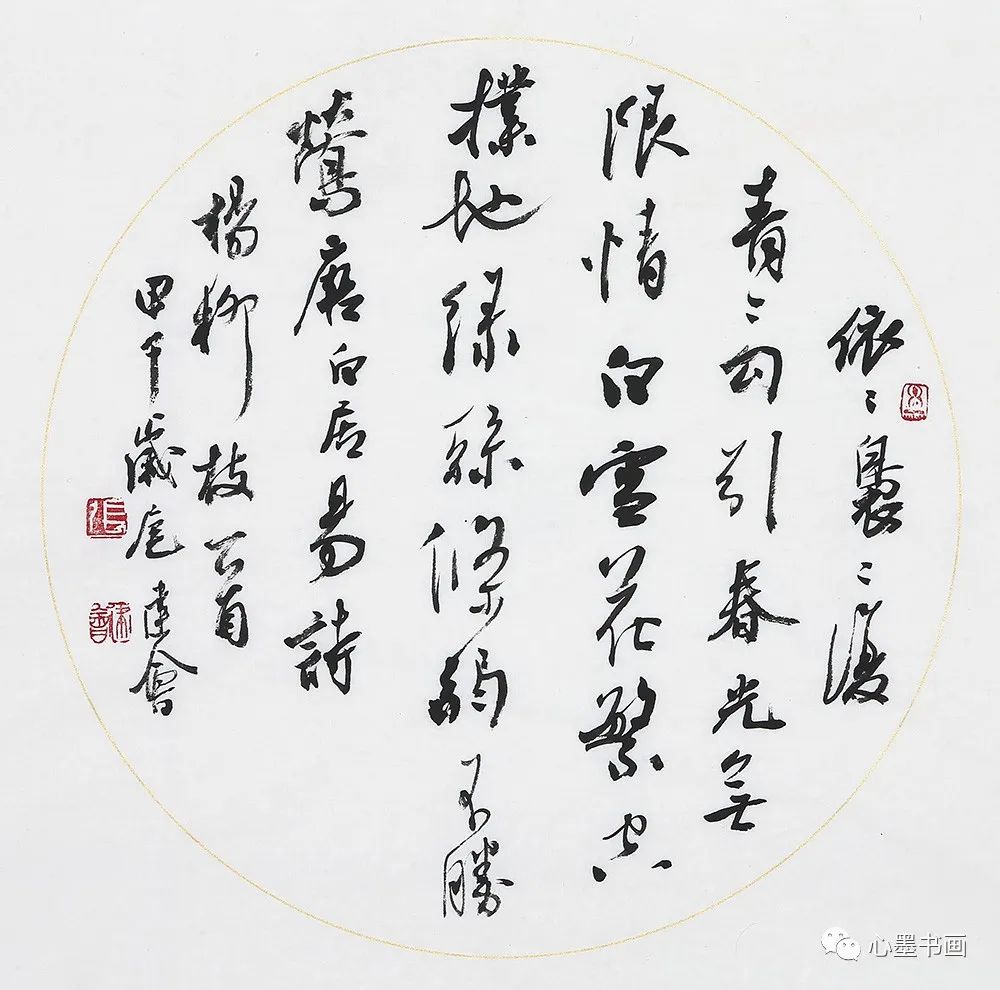 依〻裊〻復
青〻勾引春光無
限情白雪花繁空
撲地綠絲條弱不勝
鶯 唐白居易詩
楊柳枝一首
甲午歲尾建會
張
建會
心墨书画